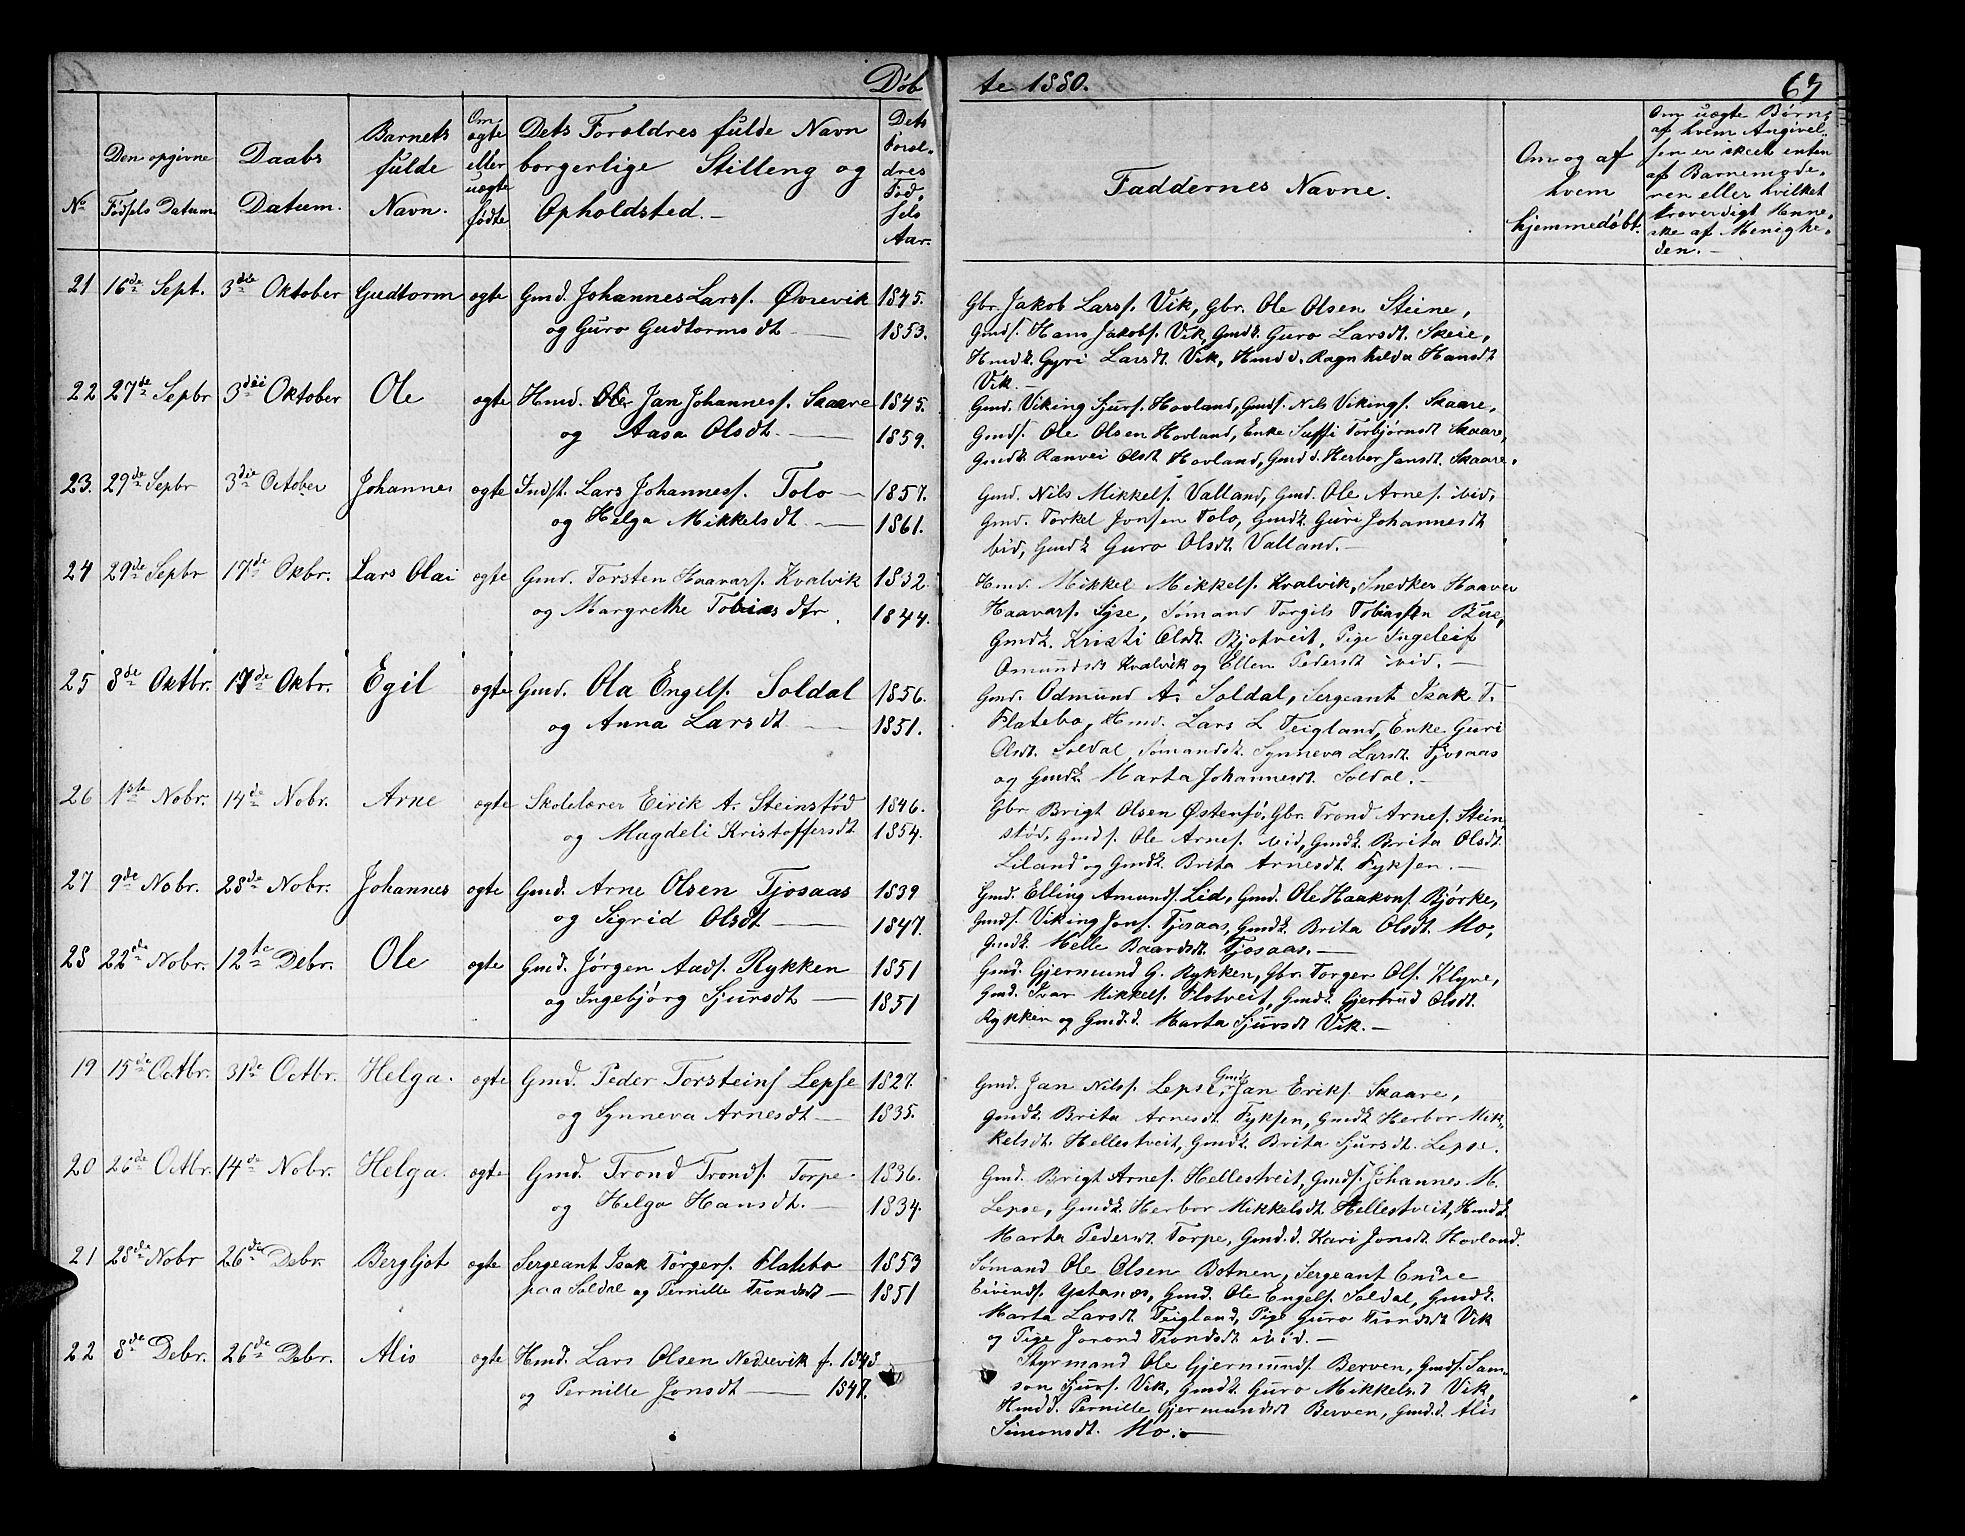 Døb
te 1880.
63
No
Den opgivne Fødsels Datum
Daabs Datum.
Barnets fulde Navn.
Om ægte eller uægte fødte
Dets Forældres fulde Navn borgerlige Stilleng og Opholdsted.—
Dets Foræl- dres Fød- sels Aar.
Faddernes Navne.
Om og af hvem hjemmedøbt.
Om uægte Børn, af hvem Angivel- sen er skeet enten af Barnemode- ren eller hvilket troverdigt Menne- ske af Menighe- den.—
21 16de Sept. 3die Oktober Gudtorm ægte Gmd. Johannes Larss. Øvrevik 1845.
og Guro Gudtormsdt. 1853.
Gbr. Jakob Larss. Vik, Gbr. Ole Olsen Steine,
Gmds. Hans Jakobs. Vik, Gmdk. Guro Larsdt. Skeie,
Hmdk. Gyri Larsdt. Vik, Hmd.d. Ragnhilda Hansdt
Vik.—
22 27de Sepbr 3die Oktober Ole ægte Hmd. Jan Johanness. Skaare 1845.
og Aasa Olsdt. 1859.
Gmd. Viking Sjurs. Hovland, Gmds. Nils Vikings. Skaare,
Gmds. Ole Olsen Hovland, Enke Torbjørnsdt Skaare,
Gmdk. Ranvei Olsdt Hovland, Gmd.d. Herbor Jansdt. Skaare.
23. 29de Sepbr 3die October Johannes ægte Indst. Lars Johanness. Tolo 1857.
og Helga Mikkelsdt. 1861.
Gmd. Nils Mikkels. Valland, Gmd. Ole Arnes. ibid,
Gmd. Torkel Jonsen Tolo, Gmdk. Guri Johannesdt
ibid, Gmdk Guro Olsdt. Valland.—
24 29de Sepbr 17de Okbr. Lars Olai ægte Gmd. Torsten Haavars. Kvalvik 1832.
og Margrethe Tobiasdtr. 1844.
Hmd. Mikkel Mikkels. Kvalvik, Snedker Haaver
Haavars. Syse, Sømand Torgils Tobiassen
Gmdk. Kristi Olsdt. Bjotveit, Pige Ingeleif
Omundsdt Kvalvik og Ellen Pedersdt ibid.—
25 8de Oktbr. 17de Okbr. Egil ægte Gmd. Ola Engels. Soldal 1856.
og Anna Larsdt 1851.
Gmd. Odmund A. Soldal, Sergeant Isak T.
Flatebø, Hmd. Lars L Teigland, Enke Guri
Olsdt. Soldal, Sømandsk. Synneva Larsdt. Tjosaas
og Gmdk. Marta Johannesdt. Soldal.—
26 1ste Nobr. 14de Nobr. Arne ægte Skolelærer Eirik A. Steinstød 1846.
og Magdeli Kristoffersdt. 1854.
Gbr Brigt Olsen Østensø, Gbr. Trond Arnes. Stein-
stød, Gmds. Ole Arnes. ibid, Gmdk. Brita Olsdt.
Liland og Gmdk. Brita Arnesdt. Fyksen.—
27 9de Nobr. 28de Nobr. Johannes ægte Gmd. Arne Olsen Tjosaas 1839
og Sigrid Olsdt 1847.
Gmd. Elling Amunds. Lid, Gmd. Ole Haakons. Bjørke,
Gmds. Viking Jons. Tjosaas, Gmdk. Brita Olsdt. Mo,
Gmdk. Helle Baardsdt Tjosaas.—
28 22de Nobr. 12te Debr. Ole ægte Gmd. Jørgen Aads. Rykken 1851
og Ingebjørg Sjursdt 1851
Gmd. Gjermund G. Rykken, Gbr. Torger Ols. Klyve,
Gmd. Ivar Mikkels. Flotveit, Gmdk. Gjertrud Olsdt.
Rykken og Gmd.d. Marta Sjursdt Vik.—
19 15de Octbr. 31de Octbr. Helga. ægte Gmd. Peder Torsteins Lepse 1827.
og Synneva Arnesdt 1835.
Gmd. Jan Nilss. Lepse, Gmd. Jan Eriks. Skaare,
Gmdk. Brita Arnesdt. Fyksen, Gmdk Herbor Mik-
kelsdt. Hellestveit, Gmdk. Brita Sjursdt. Lepse.
20 26de Octbr. 14de Nobr. Helga. ægte Gmd. Trond Tronds. Torpe 1836.
og Helga Hansdt. 1834.
Gmd. Brigt Arnes. Hellestveit, Gmds. Johannes M.
Lepse, Gmdk. Herbor Mikkelsdt. Hellestveit, Hmdk
Marta Pedersdt. Torpe, Gmd.d. Kari Jonsdt. Hovland.
21 28de Nobr 26de Debr. Bergljot ægte Sergeant Isak Torgers. Flatebø 1853
paa Soldal og Pernille Trondsdt 1851
Sømand Ole Olsen Botnen, Sergeant Endre
Eivinds. Ystanæs, Gmd. Ole Engels. Soldal, Gmdk.
Marta Larsdt. Teigland, Pige Guro Trondsdt Vik
og Pige Jorond Trondsdt ibid.—
22 8de Debr. 26de Debr. Alis ægte Hmd. Lars Olsen Nedrevik f. 1848
og Pernille Jonsdt 1847.
Styrmand Ole Gjermunds. Berven, Gmds. Sam-
son Sjurs. Vik, Gmdk. Guro Mikkelsdt Vik,
Hmd.d. Pernille Gjermundsdt Berven, Gmd.d. Alis
Simonsdt. Mo.—